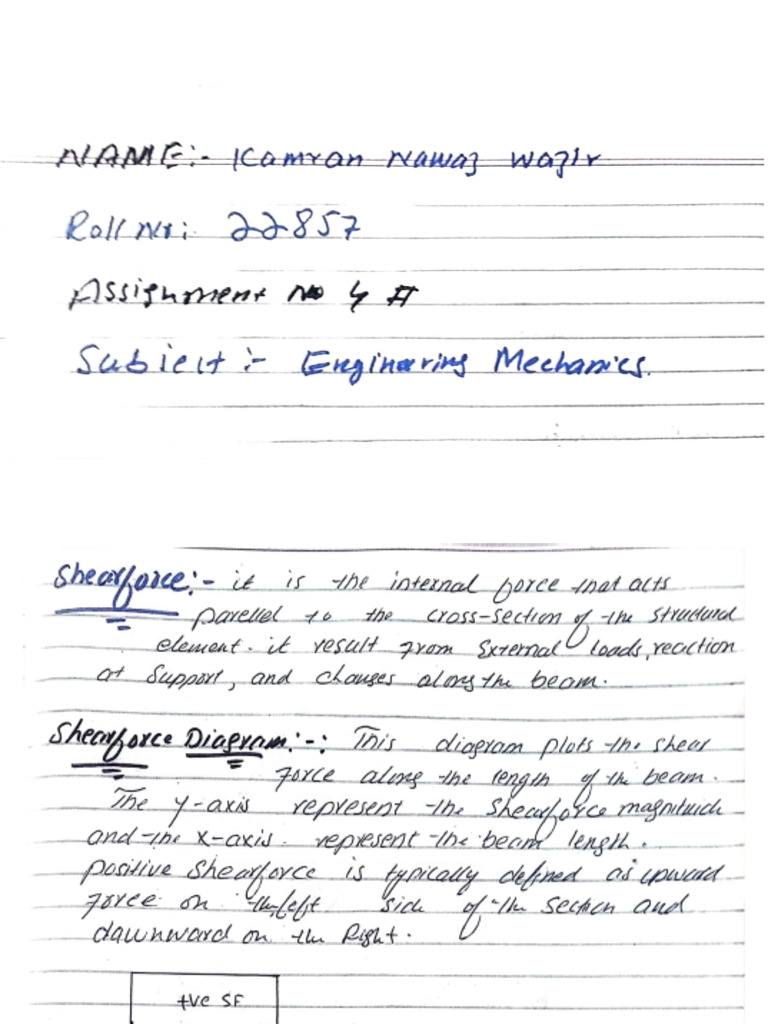 NAME:- Kamran Nawaz Wazir
Roll No: 22857
Assignment No 4 #
Subject :- Engineering Mechanics.
Shearforce:- it is the internal force that acts
parellel to the cross-section of the structural
element. it result from External loads, reaction
at Support, and changes along the beam.
Shearforce Diagram:-: This diagram plots the shear
force along the length of the beam.
The y-axis represent the Shearforce magnitude
and the x-axis represent the beam length.
positive Shearforce is typically defined as upward
force on the left side of the section and
downward on the Right.
+ve SF